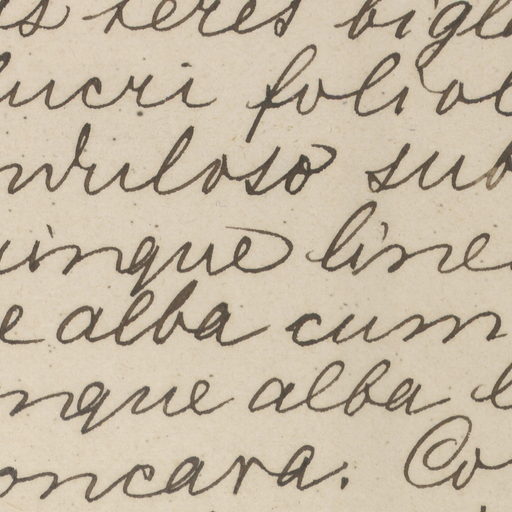 is teres bigl
lucri foliol
nduloso sub
uinque line
e alba cum
nque alba l
oncava. Co